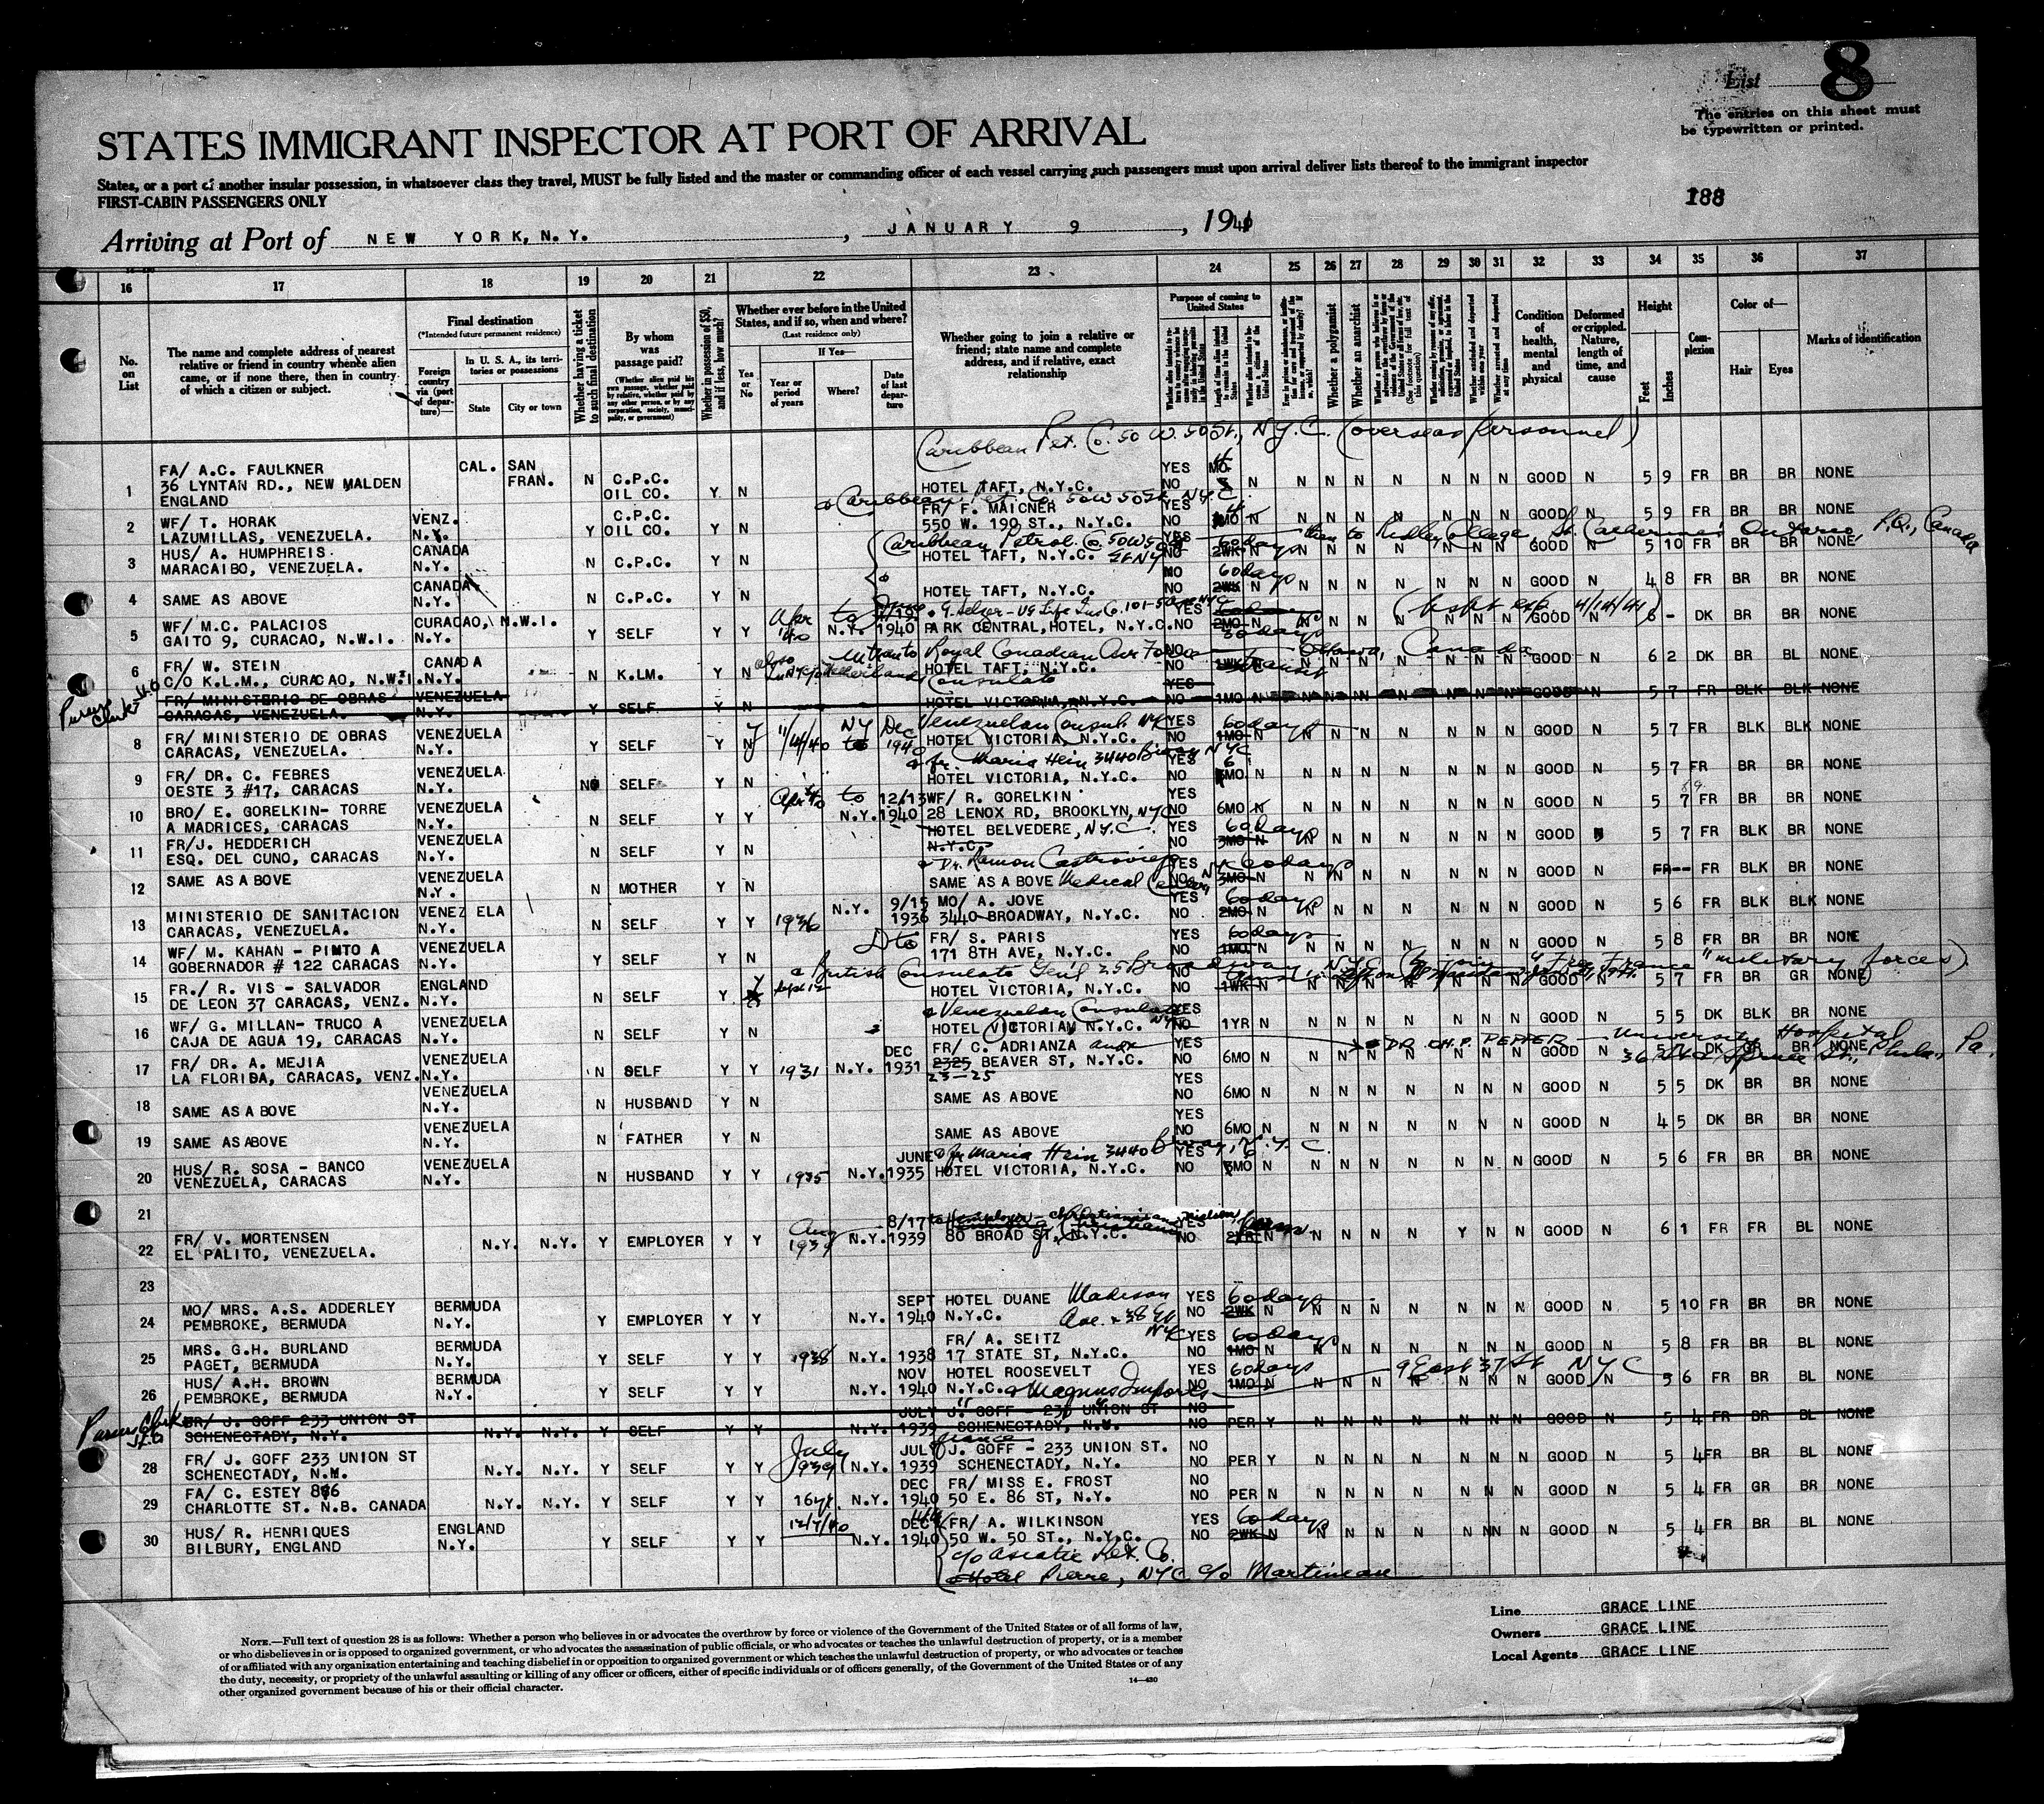 List 8
The entries on this sheet must
be typewritten or printed.
STATES IMMIGRANT INSPECTOR AT PORT OF ARRIVAL
States, or a port of another insular possession, in whatsoever class they travel, MUST be fully listed and the master or commanding officer of each vessel carrying such passengers must upon arrival deliver lists thereof to the immigrant inspector
FIRST-CABIN PASSENGERS ONLY
188
Arriving at Port of NEW YORK, N.Y. , JANUARY 9 , 1941
16 17 18 19 20 21 22 23 24 25 26 27 28 29 30 31 32 33 34 35 36 37
No. on List
The name and complete address of nearest relative or friend in country whence alien came, or if none there, then in country of which a citizen or subject.
Final destination
(*Intended future permanent residence)
Foreign country via (port of departure)—
In U. S. A., its territories or possessions
State
City or town
Whether having a ticket to such final destination
By whom was passage paid?
(Whether alien paid his own passage, whether paid by relative, whether paid by any other person, or by any corporation, society, municipality, or government)
Whether in possession of $50, and if less, how much?
Whether ever before in the United States, and if so, when and where?
(Last residence only)
Yes or No
If Yes—
Year or period of years
Where?
Date of last departure
Whether going to join a relative or friend; state name and complete address, and if relative, exact relationship
Purpose of coming to United States
Whether a polygamist
Whether an anarchist
Condition of health, mental and physical
Deformed or crippled. Nature, length of time, and cause
Height
Feet
Inches
Complexion
Color of—
Hair
Eyes
Marks of identification
Caribbean Pet. Co. 50 W. 50 St., N.Y.C. (overseas personnel)
1 FA/ A.C. FAULKNER 36 LYNTAN RD., NEW MALDEN ENGLAND CAL. SAN FRAN. N C.P.C. OIL CO. Y N HOTEL TAFT, N.Y.C. YES NO N N N N N N N N GOOD N 5 9 FR BR BR NONE
Caribbean Pet. Co. 50 W 50 St. N.Y.C.
2 WF/ T. HORAK LAZUMILLAS, VENEZUELA. VENZ. N.Y. Y C.P.C. OIL CO. Y N FR/ F. MAICNER 550 W. 190 ST., N.Y.C. YES NO MO N N N N N N N N GOOD N 5 9 FR BR BR NONE
Caribbean Petrol. Co 50 W 50 then to Ridley College, St. Catherines Ontario, P.Q., Canada
3 HUS/ A. HUMPHREIS MARACAIBO, VENEZUELA. CANADA N.Y. N C.P.C. Y N HOTEL TAFT, N.Y.C. 60 days 2WK N N N N N N N N GOOD N 5 10 FR BR BR NONE
4 SAME AS ABOVE CANADA N.Y. N C.P.C. Y N HOTEL TAFT, N.Y.C. NO NO 60 days 2WK N N N N N N N N GOOD N 4 8 FR BR BR NONE
5 WF/ M.C. PALACIOS GAITO 9, CURACAO, N.W.I. CURACAO, N.W.I. N.Y. Y SELF Y Y Apr '40 to N.Y. 1940 PARK CENTRAL, HOTEL, N.Y.C. YES NO 2MO 30 days GOOD N 6 - DK BR BR NONE
6 FR/ W. STEIN C/O K.L.M., CURACAO, N.W.I. CANADA N.Y. N K.L.M. Y N Royal Canadian Air Force Ottawa, Canada HOTEL TAFT, N.Y.C. NO NO 1WK transit GOOD N 6 2 DK BR BL NONE
FR/ MINISTERIO DE OBRAS CARACAS, VENEZUELA. VENEZUELA N.Y. Y SELF Y N HOTEL VICTORIA, N.Y.C. YES NO 1MO N N N N N N GOOD N 5 7 FR BLK BLK NONE
8 FR/ MINISTERIO DE OBRAS CARACAS, VENEZUELA. VENEZUELA N.Y. Y SELF Y N 11/4/40 NY to Dec 1940 Venezuelan Consul NY HOTEL VICTORIA, N.Y.C. YES NO 60 days 1MO N N N N N N N N GOOD N 5 7 FR BLK BLK NONE
Fr. Maria Hein 3440 Bway NYC
9 FR/ DR. C. FEBRES OESTE 3 #17, CARACAS VENEZUELA N.Y. NO SELF Y N HOTEL VICTORIA, N.Y.C. YES NO 6 MO N N N N N N N N GOOD N 5 7 FR BR BR NONE
10 BRO/ E. GORELKIN- TORRE A MADRICES, CARACAS VENEZUELA N.Y. N SELF Y Y Apr '40 to N.Y. 12/13 1940 WF/ R. GORELKIN 28 LENOX RD, BROOKLYN, NYC YES NO 6MO N N N N N N N N GOOD N 5 7 FR BR BR NONE
11 FR/J. HEDDERICH ESQ. DEL CUNO, CARACAS VENEZUELA N.Y. N SELF Y N HOTEL BELVEDERE, N.Y.C. N.Y.C. YES NO 60 days 3MO N N N N N N N N GOOD N 5 7 FR BLK BR NONE
Dr. Ramon Castroviejo
12 SAME AS A BOVE VENEZUELA N.Y. N MOTHER Y N SAME AS A BOVE Medical Center YES NO 60 days 3MO N N N N N N N N GOOD N FR-- FR BLK BR NONE
13 MINISTERIO DE SANITACION CARACAS, VENEZUELA. VENEZ ELA N.Y. N SELF Y Y 1936 N.Y. 9/15 1936 MO/ A. JOVE 3440 BROADWAY, N.Y.C. YES NO 60 days 2MO N N N N N N N N GOOD N 5 6 FR BLK BLK NONE
14 WF/ M. KAHAN - PINTO A GOBERNADOR # 122 CARACAS VENEZUELA N.Y. Y SELF Y N FR/ S. PARIS 171 8TH AVE, N.Y.C. YES NO 60 days 1MO N N N N N N N N GOOD N 5 8 FR BR BR NONE
British Consulate Gen'l 25 Broadway, NYC (to join "Free France" military forces)
15 FR./ R. VIS - SALVADOR DE LEON 37 CARACAS, VENZ. ENGLAND N.Y. N SELF Y Sept 12 HOTEL VICTORIA, N.Y.C. NO 1WK N GOOD N 5 7 FR BR GR NONE
Venezuelan Consulate
16 WF/ G. MILLAN- TRUCO A CAJA DE AGUA 19, CARACAS VENEZUELA N.Y. N SELF Y N HOTEL VICTORIA N.Y.C. YES NO 1YR N N N N N N N N GOOD N 5 5 DK BLK BR NONE
17 FR/ DR. A. MEJIA LA FLORIDA, CARACAS, VENZ. VENEZUELA N.Y. N SELF Y Y 1931 N.Y. DEC 1931 FR/ C. ADRIANZA 2325 BEAVER ST, N.Y.C. 23-25 YES NO 6MO N DR. O.H.P. PEPPER - University Hospital Spruce St., Phila, Pa. GOOD N DK BR NONE
18 SAME AS A BOVE VENEZUELA N.Y. N HUSBAND Y N SAME AS ABOVE YES NO 6MO N N N N N N N N GOOD N 5 5 DK BR BR NONE
19 SAME AS ABOVE VENEZUELA N.Y. N FATHER Y N SAME AS ABOVE YES NO 6MO N N N N N N N N GOOD N 4 5 DK BR BR NONE
Fr Maria Hein 3440 Bway, N.Y.C.
20 HUS/ R. SOSA - BANCO VENEZUELA, CARACAS VENEZUELA N.Y. N HUSBAND Y Y 1935 N.Y. JUNE 1935 HOTEL VICTORIA, N.Y.C. YES NO MO N N N N N N N N GOOD N 5 6 FR BR BR NONE
21
22 FR/ V. MORTENSEN EL PALITO, VENEZUELA. N.Y. N.Y. Y EMPLOYER Y Y Aug 1939 N.Y. 8/17 1939 80 BROAD ST, N.Y.C. YES NO 2YR N N N N N Y N N GOOD N 6 1 FR FR BL NONE
23
24 MO/ MRS. A.S. ADDERLEY PEMBROKE, BERMUDA BERMUDA N.Y. Y EMPLOYER Y Y N.Y. SEPT 1940 HOTEL DUANE N.Y.C. Madison Ave. & 38 YES NO 60 days 2WK N N N N N N N N GOOD N 5 10 FR BR BR NONE
25 MRS. G.H. BURLAND PAGET, BERMUDA BERMUDA N.Y. Y SELF Y Y 1938 N.Y. 1938 FR/ A. SEITZ 17 STATE ST, N.Y.C. YES NO 60 days 1MO N N N N N N N N GOOD N 5 8 FR BR BL NONE
26 HUS/ A.H. BROWN PEMBROKE, BERMUDA BERMUDA N.Y. Y SELF Y Y N.Y. NOV 1940 HOTEL ROOSEVELT N.Y.C. Magnus Imports 9 East 37 St NYC YES NO 60 days 1MO N N N N N N N N GOOD N 5 6 FR BR BL NONE
BR/ J. GOFF 233 UNION ST SCHENECTADY, N.Y. N.Y. N.Y. Y SELF Y Y N.Y. JULY 1939 J. GOFF - 233 UNION ST SCHENECTADY, N.Y. NO NO PER Y N N N N N N N GOOD N 5 4 FR BR BL NONE
28 FR/ J. GOFF 233 UNION ST SCHENECTADY, N.M. N.Y. N.Y. Y SELF Y Y July 1939 N.Y. JULY 1939 J. GOFF - 233 UNION ST. SCHENECTADY, N.Y. NO NO PER Y N N N N N N N GOOD N 5 4 FR BR BL NONE
29 FA/ C. ESTEY 886 CHARLOTTE ST. N.B. CANADA N.Y. N.Y. Y SELF Y Y 16 yr N.Y. DEC 1940 FR/ MISS E. FROST 50 E. 86 ST, N.Y. NO NO PER N N N N N N N N GOOD N 5 4 FR GR BR NONE
30 HUS/ R. HENRIQUES BILBURY, ENGLAND ENGLAND N.Y. Y SELF Y Y 12/7/40 N.Y. DEC 1940 FR/ A. WILKINSON 50 W. 50 ST., N.Y.C. YES NO 60 days 2WK N N N N N N NN N GOOD N 5 4 FR BR BL NONE
c/o Asiatic Pet. Co.
Hotel Pierre, NYC c/o Martineau
Line GRACE LINE
Owners GRACE LINE
Local Agents GRACE LINE
NOTE.—Full text of question 28 is as follows: Whether a person who believes in or advocates the overthrow by force or violence of the Government of the United States or of all forms of law,
or who disbelieves in or is opposed to organized government, or who advocates the assassination of public officials, or who advocates or teaches the unlawful destruction of property, or is a member
of or affiliated with any organization entertaining and teaching disbelief in or opposition to organized government or which teaches the unlawful destruction of property, or who advocates or teaches
the duty, necessity, or propriety of the unlawful assaulting or killing of any officer or officers, either of specific individuals or of officers generally, of the Government of the United States or of any
other organized government because of his or their official character.
14—430